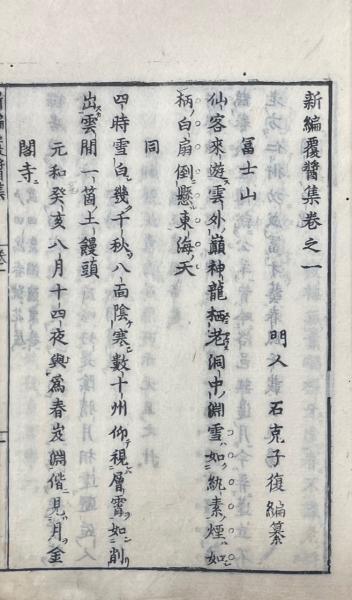 新編覆醬集卷之一
門人 石克子復編纂
冨士山
仙客來遊雲外巓神龍栖老洞中淵雪如紈素煙如
柄白扇倒懸東海天
同
四時雪白幾千秋八面陰寒數十州仰視層霄如削
出雲間一箇土饅頭
元和癸亥八月十四夜與爲春岌淵偕見月金
閣寺